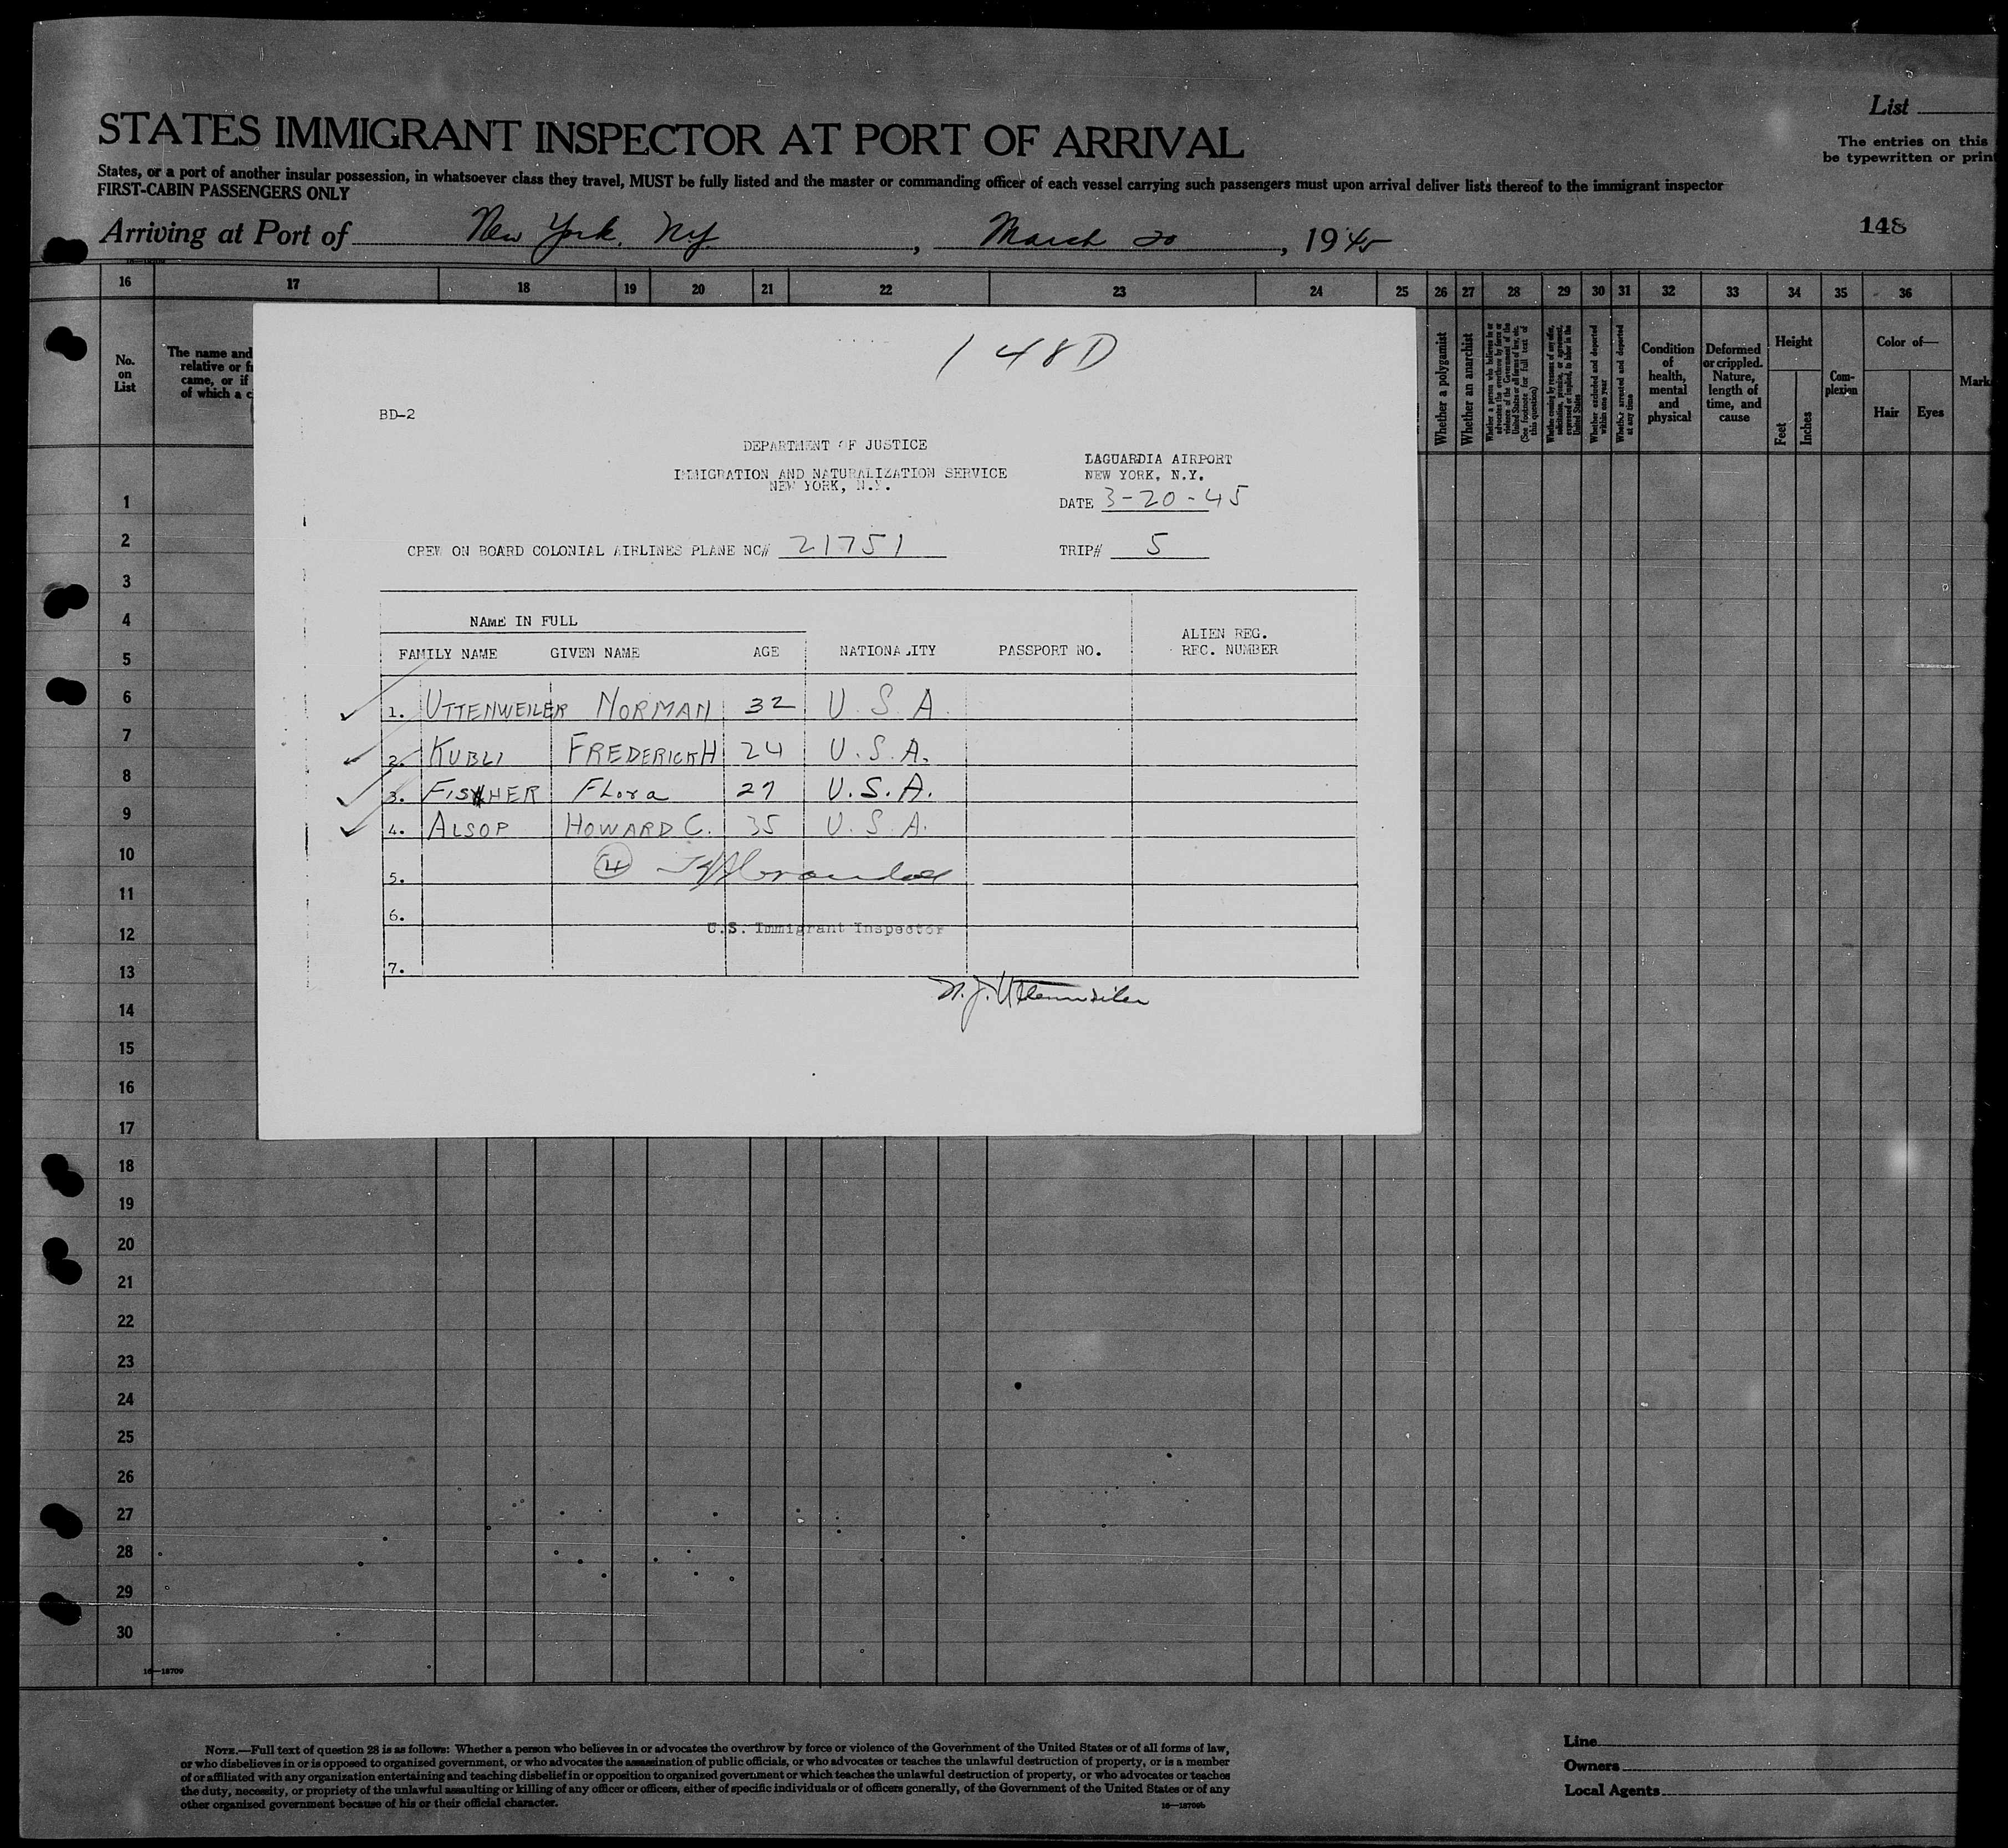 List
STATES IMMIGRANT INSPECTOR AT PORT OF ARRIVAL
The entries on this
be typewritten or print
States, or a port of another insular possession, in whatsoever class they travel, MUST be fully listed and the master or commanding officer of each vessel carrying such passengers must upon arrival deliver lists thereof to the immigrant inspector
FIRST-CABIN PASSENGERS ONLY
Arriving at Port of New York, N.Y. , March 20 , 1945
148
16 17 18 19 20 21 22 23 24 25 26 27 28 29 30 31 32 33 34 35 36
No. on List
The name and
relative or f
came, or if
of which a c
Whether a polygamist
Whether an anarchist
Whether a person who believes in or advocates the overthrow by force or violence of the Government of the United States or all forms of law, etc. (See footnote for full text of this question)
Whether coming by reason of any offer, solicitation, promise, or agreement, expressed or implied, to labor in the United States
Whether excluded and deported within one year
Whether arrested and deported at any time
Condition of health, mental and physical
Deformed or crippled. Nature, length of time, and cause
Height
Feet
Inches
Com-plexion
Color of—
Hair
Eyes
Mark
148D
BD-2
DEPARTMENT OF JUSTICE
IMMIGRATION AND NATURALIZATION SERVICE
NEW YORK, N.Y.
LAGUARDIA AIRPORT
NEW YORK, N.Y.
DATE 3-20-45
CREW ON BOARD COLONIAL AIRLINES PLANE NC# 21751
TRIP# 5
NAME IN FULL
FAMILY NAME GIVEN NAME AGE NATIONALITY PASSPORT NO. ALIEN REG. REC. NUMBER
1. UTTENWEILER NORMAN 32 U.S.A.
2. KUBLI FREDERICK H 24 U.S.A.
3. FISHER Flora 27 U.S.A.
4. ALSOP HOWARD C. 35 U.S.A.
5. 4
6.
U.S. Immigrant Inspector
7.
N. J. Uttenweiler
1
2
3
4
5
6
7
8
9
10
11
12
13
14
15
16
17
18
19
20
21
22
23
24
25
26
27
28
29
30
16—18709
NOTE.—Full text of question 28 is as follows: Whether a person who believes in or advocates the overthrow by force or violence of the Government of the United States or of all forms of law,
or who disbelieves in or is opposed to organized government, or who advocates the assassination of public officials, or who advocates or teaches the unlawful destruction of property, or is a member
of or affiliated with any organization entertaining and teaching disbelief in or opposition to organized government or which teaches the unlawful destruction of property, or who advocates or teaches
the duty, necessity, or propriety of the unlawful assaulting or killing of any officer or officers, either of specific individuals or of officers generally, of the Government of the United States or of any
other organized government because of his or their official character.
16—18709b
Line
Owners
Local Agents